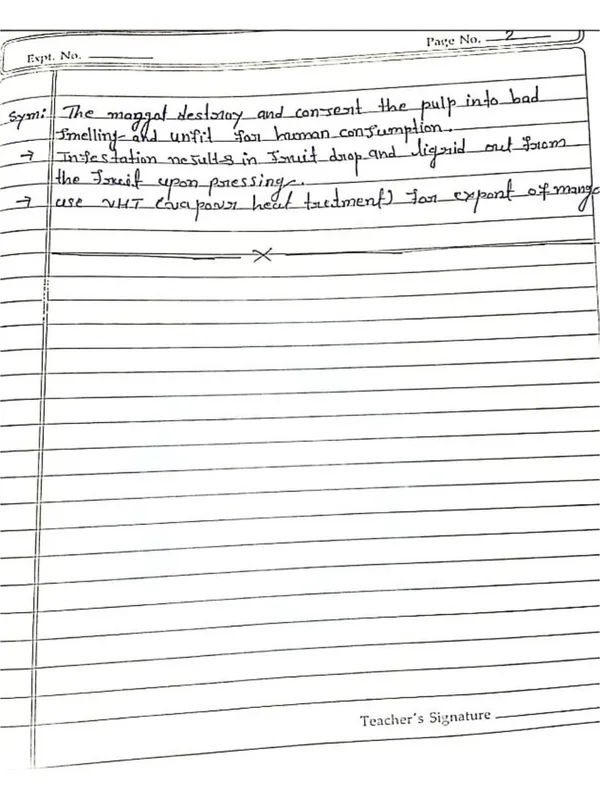 Page No. 2
Expt. No.
Sym: The maggat destroay and convert the pulp into bad
smelling and unfit for human consumption.
→ Infestation results in fruit drop and liqrid out from
the fruit upon pressing.
→ use VHT (vapour heat tretment) for export of mango
Teacher's Signature